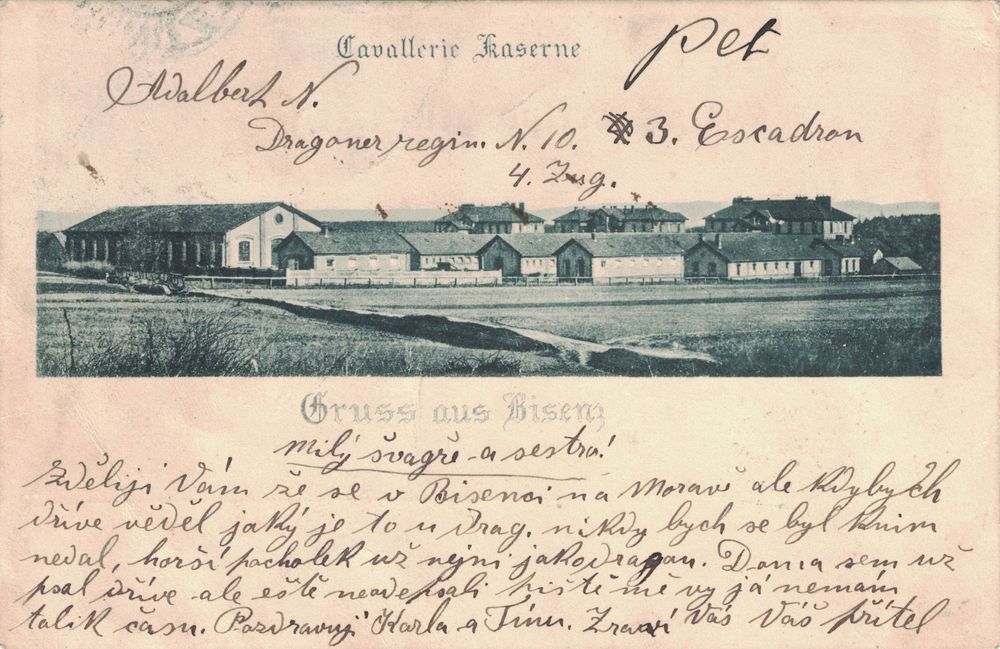 Cavallerie Kaserne
Pet
Adalbert N.
Dragoner regim. N. 10. 3. Escadron
4. Zug.
Gruss aus Bisenz
Milý švagře a sestro!
Zděliji Vám že se v Bisenci na Moravě ale kdybych
dříve věděl jaký je to u drag. nikdy bych se byl knim
nedal, horší pacholek už nejni jako dragon. Doma sem už
psal dříve ale eště neodepsali pište mě vy já nemám
tolik času. Pozdravuji Karla a Tinu. Zraví Vás Váš přítel